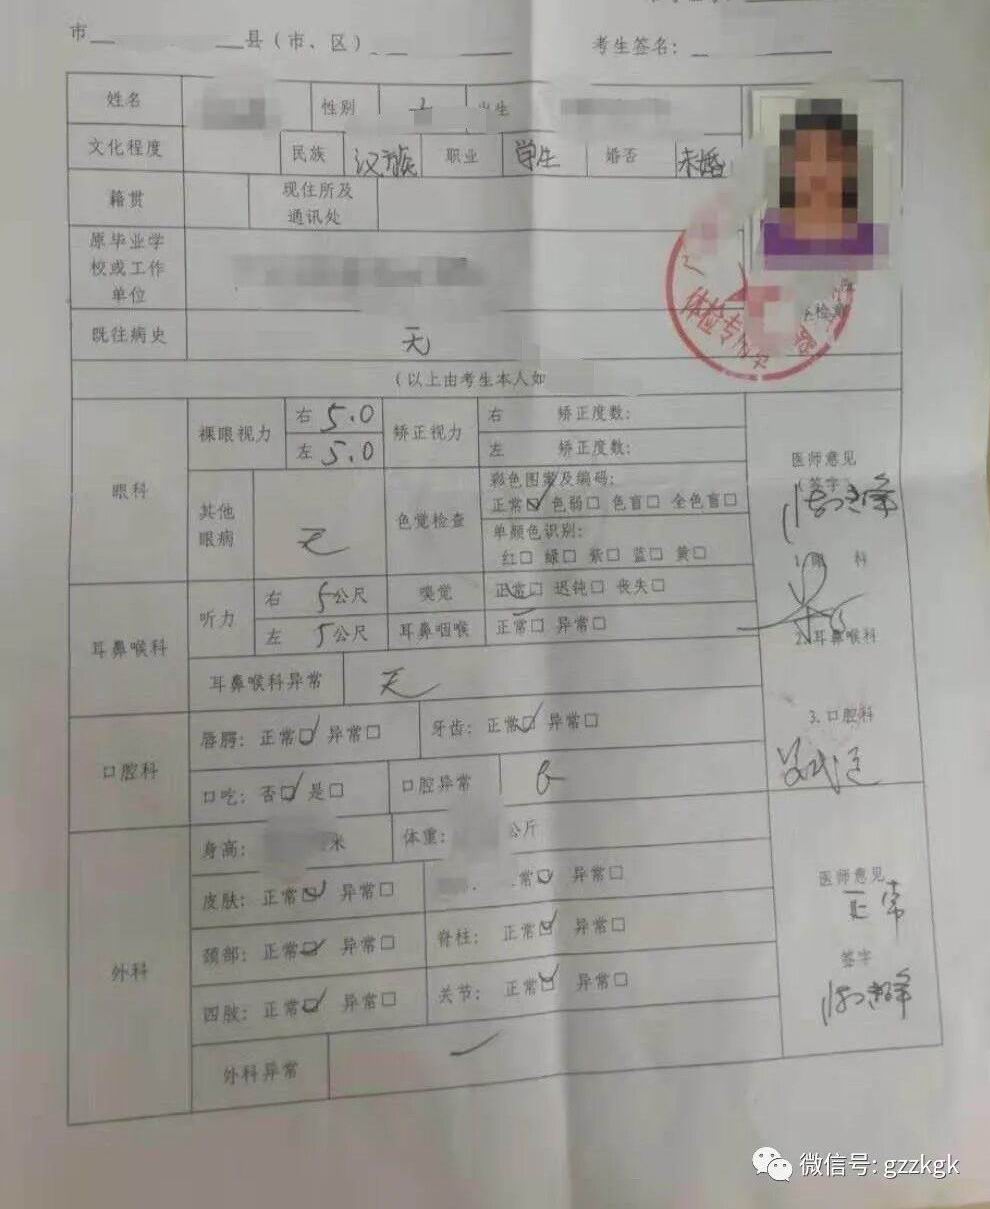 市 县(市、区)
考生签名:
姓名 性别
文化程度 民族 汉族 职业 学生 婚否 未婚
籍贯 现住所及
通讯处
原毕业学
校或工作
单位
既往病史 无
体检专用
(以上由考生本人如
眼科 裸眼视力 右 5.0 矫正视力 右 矫正度数:
左 5.0 左 矫正度数:
其他
眼病 无
色觉检查 彩色图案及编码:
正常☑ 色弱□ 色盲□ 全色盲□
单颜色识别:
红□ 绿□ 紫□ 蓝□ 黄□
医师意见
(签字)
1.眼 科
耳鼻喉科 听力 右 5公尺 嗅觉 正常□ 迟钝□ 丧失□
左 5公尺 耳鼻咽喉 正常□ 异常□
2.耳鼻喉科
耳鼻喉科异常 无
口腔科 唇腭: 正常☑ 异常□ 牙齿: 正常☑ 异常□
3.口腔科
口吃: 否☑ 是□ 口腔异常
外科 身高: 米 体重: 公斤
皮肤: 正常☑ 异常□ 常☑ 异常□
颈部: 正常☑ 异常□ 脊柱: 正常☑ 异常□
四肢: 正常☑ 异常□ 关节: 正常☑ 异常□
外科异常
医师意见
正常
签字
微信号: gzzkgk